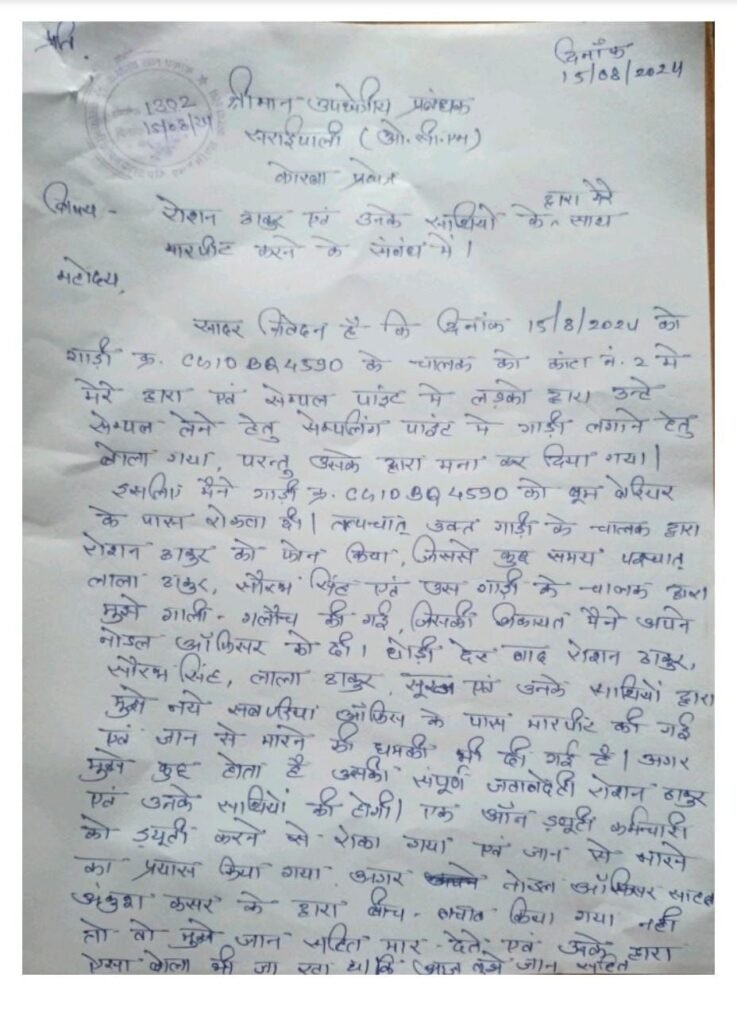 प्रति,
दिनाँक
15/08/2024
1302
15/08/24
श्रीमान उपक्षेत्रीय प्रबंधक
सराईपाली (ओ.सी.एम)
कोरबा
द्वारा मेरे
विषय - रोशन ठाकुर एवं उनके साथियों के साथ
मारपीट करने के संबंध में।
महोदय,
सादर निवेदन है कि दिनांक 15/8/2024 को
गाड़ी क्र. CG10BQ4590 के चालक को कांटा नं. 2 मे
मेरे द्वारा एवं सेम्पल पाइंट मे लड़को द्वारा उन्हे
सेम्पल लेने हेतु सेम्पलिंग पाइंट मे गाड़ी लगाने हेतु
बोला गया, परन्तु उसके द्वारा मना कर दिया गया।
इसलिए मैने गाड़ी क्र. CG10BQ4590 को बूम बेरियर
के पास रोकवा दी। तत्पश्चात् उक्त गाड़ी के चालक द्वारा
रोशन ठाकुर को फोन किया, जिससे कुछ समय पश्चात्
लाला ठाकुर, सौरभ सिंह एवं उस गाड़ी के चालक द्वारा
मुझे गाली-गलौच की गई, जिसकी शिकायत मैने अपने
नोडल ऑफिसर को दी। थोड़ी देर बाद रोशन ठाकुर,
सौरभ सिंह, लाला ठाकुर, सूरज एवं उनके साथियों द्वारा
मुझे नये सबएरिया ऑफिस के पास मारपीट की गई
एवं जान से मारने की धमकी भी दी गई है। अगर
मुझे कुछ होता है उसकी संपूर्ण जवाबदेही रोशन ठाकुर
एवं उनके साथियों की होगी। एक ऑन ड्यूटी कर्मचारी
को ड्यूटी करने से रोका गया एवं जान से मारने
का प्रयास किया गया, अगर नोडल ऑफिसर साहब
अंकुश कसर के द्वारा बीच-बचाव किया गया नही
तो वो मुझे जान सहित मार देते, एवं उनके द्वारा
ऐसा बोला भी जा रहा था कि आज तुझे जान सहित